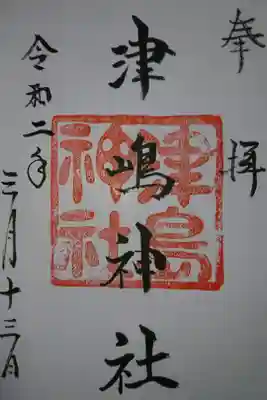 奉拝
津嶋神社
津島
神社
令和二年
三月十三日